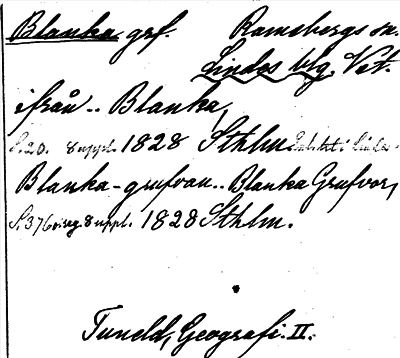 Blanka grf. Ramsbergs sn.
Lindes blg. Vst.
ifrån.. Blanka,
S. 20. 8 uppl. 1828 Sthlm
Blanka-grufvan.. Blanka Grufvor,
S. 376 8 uppl. 1828 Sthlm.
Tuneld, Geografi. II.